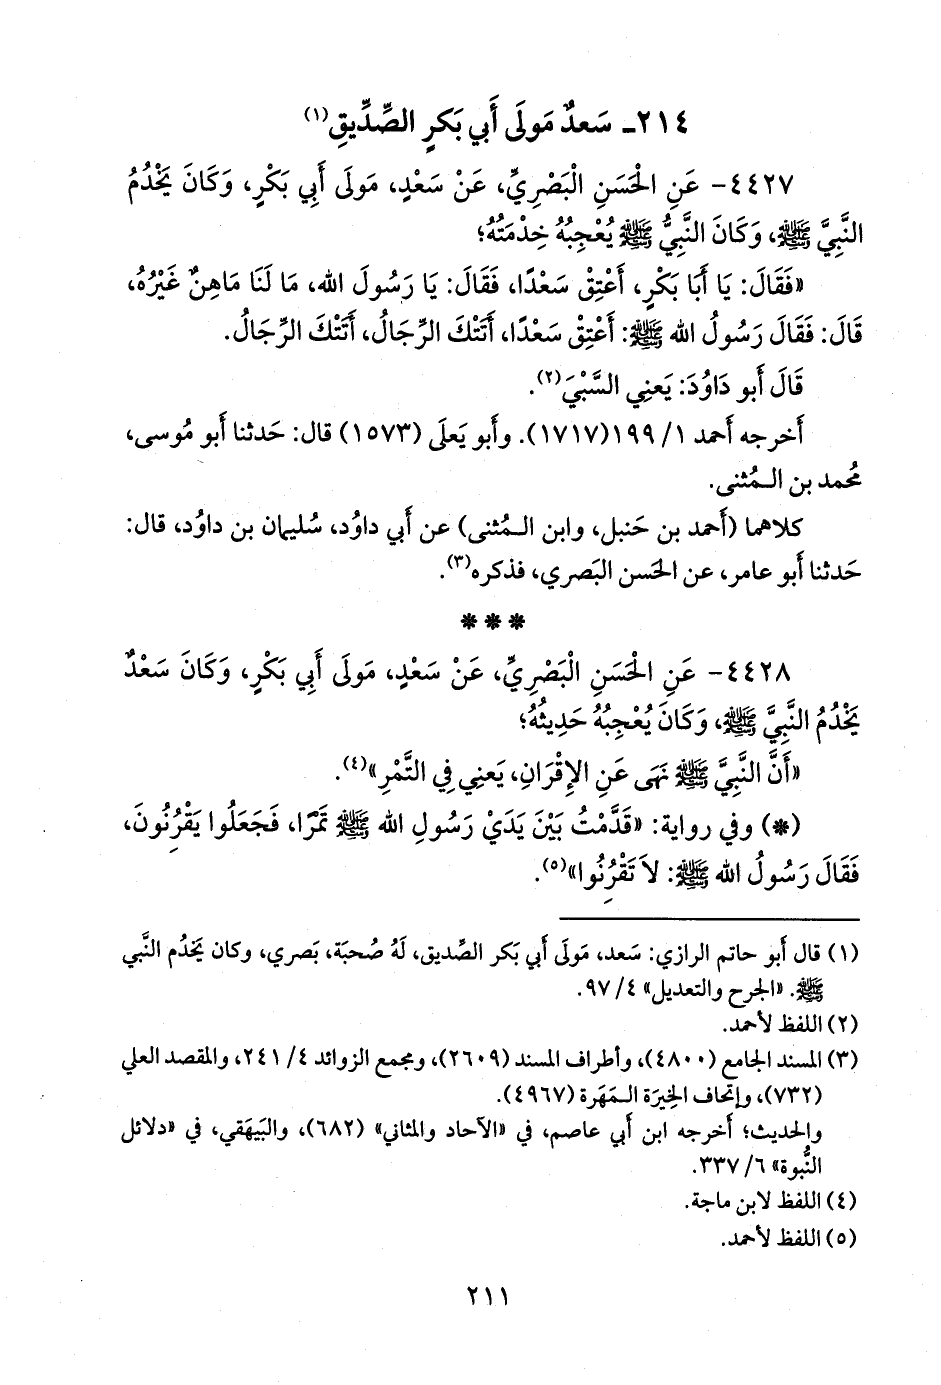 ٢١٤ـ سَعدٌ مَولَى أَبي بَكرٍ الصِّدِّيقِ(١)
٤٤٢٧- عَنِ الْحَسَنِ الْبَصْرِيِّ، عَنْ سَعْدٍ، مَولَى أَبِي بَكْرٍ، وَكَانَ يَخْدُمُ
النَّبِيَّ ﷺ، وَكَانَ النَّبِيُّ ﷺ يُعْجِبُهُ خِدْمَتُهُ؛
«فَقَالَ: يَا أَبَا بَكْرٍ، أَعْتِقْ سَعْدًا، فَقَالَ: يَا رَسُولَ الله، مَا لَنَا مَاهِنٌ غَيْرُهُ،
قَالَ: فَقَالَ رَسُولُ الله ﷺ: أَعْتِقْ سَعْدًا، أَتَتْكَ الرِّجَالُ، أَتَتْكَ الرِّجَالُ.
قَالَ أَبو دَاوُدَ: يَعنِي السَّبْيَ(٢).
أَخرجه أَحمد ١/ ١٩٩(١٧١٧). وأَبو يَعلَى (١٥٧٣) قال: حَدثنا أَبو مُوسى،
مُحمد بن الـمُثنى.
كلاهما (أَحمد بن حَنبل، وابن الـمُثنى) عن أَبي داوُد، سُليمان بن داوُد، قال:
حَدثنا أَبو عامر، عن الحَسن البَصري، فذكره(٣).
* * *
٤٤٢٨- عَنِ الْحَسَنِ الْبَصْرِيِّ، عَنْ سَعْدٍ، مَولَى أَبِي بَكْرٍ، وَكَانَ سَعْدٌ
يَخْدُمُ النَّبِيَّ ﷺ، وَكَانَ يُعْجِبُهُ حَدِيثُهُ؛
«أَنَّ النَّبِيَّ ﷺ نَهَى عَنِ الإِقْرَانِ، يَعنِي فِي التَّمْرِ»(٤).
(*) وفي رواية: «قَدَّمْتُ بَيْنَ يَدَيْ رَسُولِ الله ﷺ تَمْرًا، فَجَعَلُوا يَقْرُنُونَ،
فَقَالَ رَسُولُ الله ﷺ: لاَ تَقْرُنُوا»(٥).
(١) قال أَبو حاتم الرازي: سَعد، مَولَى أَبي بَكر الصِّديق، لَهُ صُحبَة، بَصري، وكان يَخدُم النَّبي
ﷺ. «الجرح والتعديل» ٤/ ٩٧.
(٢) اللفظ لأحمد.
(٣) المسند الجامع (٤٨٠٠)، وأطراف المسند (٢٦٠٩)، ومجمع الزوائد ٤/ ٢٤١، والمقصد العلي
(٧٣٢)، وإتحاف الخِيرَة الـمَهَرة (٤٩٦٧).
والحديث؛ أخرجه ابن أبي عاصم، في «الآحاد والمثاني» (٦٨٢)، والبَيهَقي، في «دلائل
النُّبوة» ٦/ ٣٣٧.
(٤) اللفظ لابن ماجة.
(٥) اللفظ لأحمد.
٢١١